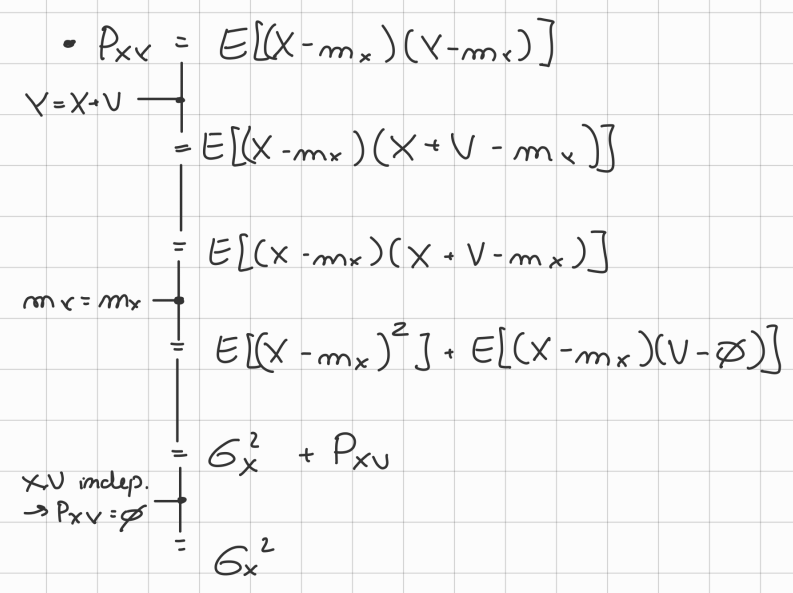 • P_XY = E[(X-m_x)(Y-m_Y)]
Y=X+V
= E[(X-m_x)(X+V-m_Y)]
= E[(X-m_x)(X+V-m_x)]
m_Y = m_x
= E[(X-m_x)^2] + E[(X-m_x)(V-∅)]
= σ_x^2 + P_XV
X,V indep.
→ P_XV = ∅
= σ_x^2